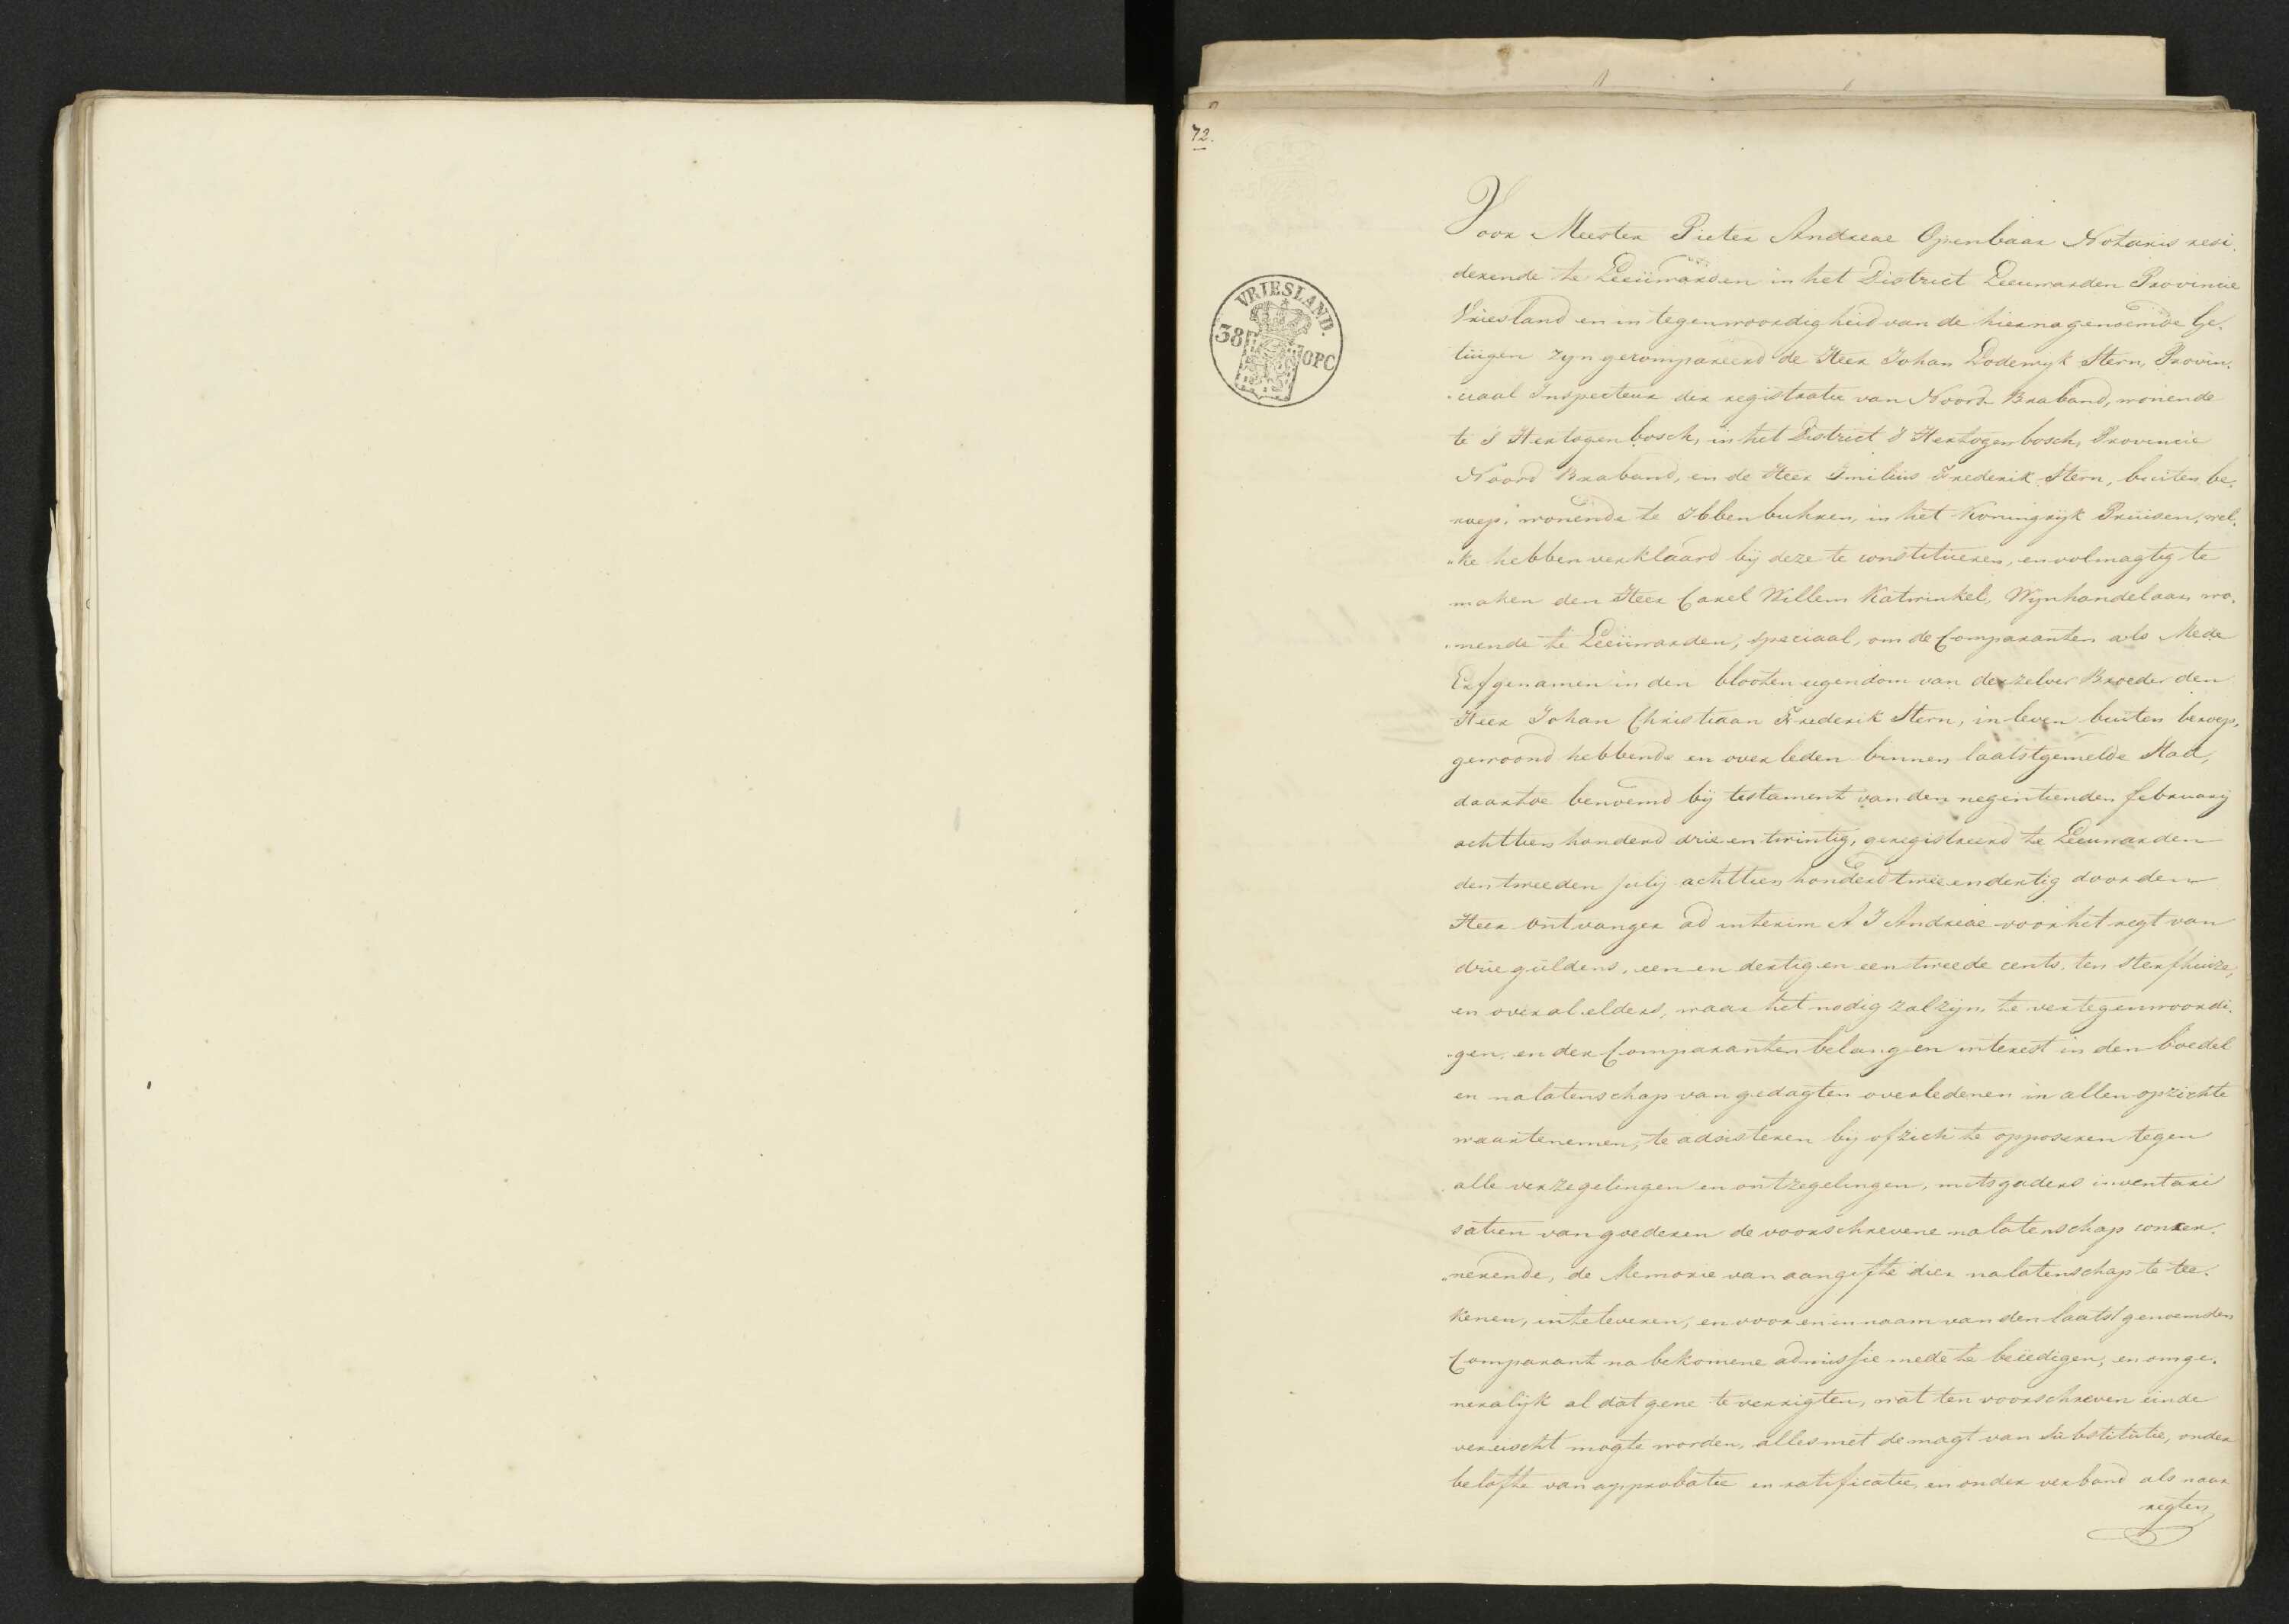 72.
VRIESLAND.
38 OPC
Voor Meester Pieter Andreae Openbaar Notaris resi,
derende te Leeuwarden in het District Leeuwarden Provincie
Vriesland en in tegenwoordigheid van de hiernagenoemde Ge,
tuigen zyn gecompareerd de Heer Johan Lodewyk Stern, Provin,
„ciaal Inspecteur der registratie van Noord Braband, wonende
te S Hertogenbosch, in het District S Hertogenbosch, Provincie
Noord Braband, en de Heer Imilius Frederik Stern, buiten be,
roep, wonende te Ibbenbuhren, in het Koningryk Pruisen, wel,
„ke hebben verklaard bij deze te constitueren, en volmagtig te
maken den Heer Carel Willem Katwinkel, Wynhandelaar, wo,
„nende te Leeuwarden, speciaal, om de Comparanten als Mede
Erfgenamen in den blooten eigendom van derzelver Broeder den
Heer Johan Christiaan Frederik Stern, in leven buiten beroep,
gewoond hebbende en overleden binnen laatstgemelde Stad,
daartoe benoemd bij testament van den negentienden february
achttien honderd drie en twintig, geregistreerd te Leeuwarden
den tweeden july achttien honderd twee en dertig door den
Heer Ontvanger ad interim A J Andreae voor het regt van
drie guldens, een en dertig en een tweede cents, ten sterfhuize,
en overal elders, waar het nodig zal zijn, te vertegenwoordi,
„gen, en der Comparanten belang en interest in den boedel
en nalatenschap van gedagten overledenen in allen opzichte
waartenemen, te adsisteren bij of zich te opposeren tegen
alle verzegelingen en ontzegelingen, mitsgaders inventari
satien van goederen de voorschrevene nalatenschap concer,
„nerende, de Memorie van aangifte dier nalatenschap te tee,
kenen, inteleveren, en voor en in naam van den laatstgenoemden
Comparant na bekomene admissie mede te beëedigen, en om ge,
neralijk al dat gene te verrigten, wat ten voorschreven einde
vereischt mogte worden, alles met de magt van Substitutie, onder
belofte van approbatie en ratificatie, en onder verband als naar
regten